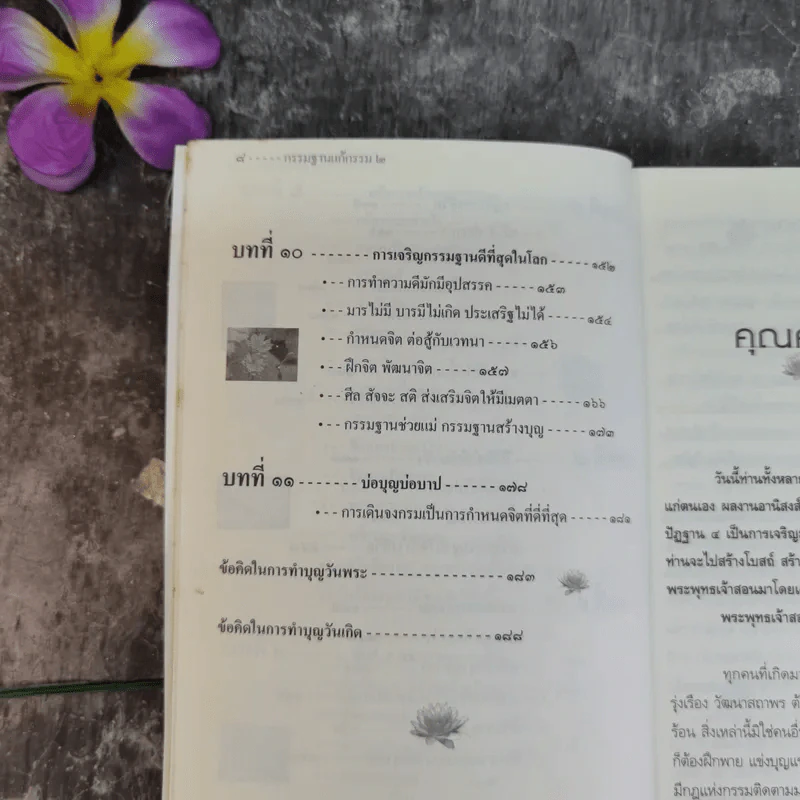 ๘ ----- กรรมฐานแก้กรรม ๒
บทที่ ๑๐ ------- การเจริญกรรมฐานดีที่สุดในโลก ----- ๑๕๒
•-- การทำความดีมักมีอุปสรรค ----- ๑๕๓
•-- มารไม่มี บารมีไม่เกิด ประเสริฐไม่ได้ ----- ๑๕๔
•-- กำหนดจิต ต่อสู้กับเวทนา ----- ๑๕๖
•-- ฝึกจิต พัฒนาจิต ----- ๑๕๗
•-- ศีล สัจจะ สติ ส่งเสริมจิตให้มีเมตตา ----- ๑๖๖
•-- กรรมฐานช่วยแม่ กรรมฐานสร้างบุญ ----- ๑๗๓
บทที่ ๑๑ ------- บ่อบุญบ่อบาป ------ ๑๗๘
•-- การเดินจงกรมเป็นการกำหนดจิตที่ดี่ที่สุด ----- ๑๘๑
ข้อคิดในการทำบุญวันพระ --------------- ๑๘๓
ข้อคิดในการทำบุญวันเกิด -------------- ๑๘๘
วันนี้ท่านทั้งหลาย
แก่ตนเอง ผลงานอานิสงส์
ปัฏฐาน ๔ เป็นการเจริญ
ท่านจะไปสร้างโบสถ์ สร้าง
พระพุทธเจ้าสอนมาโดย
พระพุทธเจ้าสอ
ทุกคนที่เกิดมา
รุ่งเรือง วัฒนาสถาพร
ร้อน สิ่งเหล่านี้มิใช่คนอื่
ก็ต้องฝึกพาย แข่งบุญ
มีกฎแห่งกรรมติดตาม